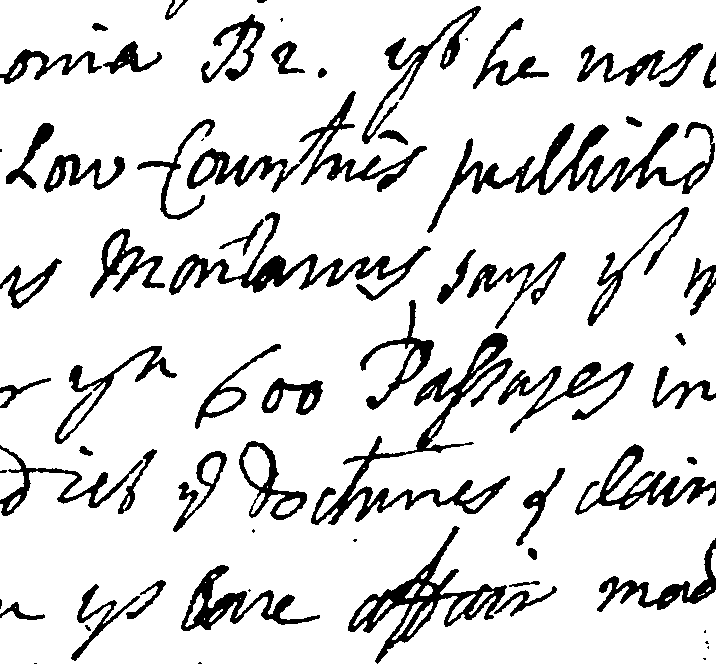 onia Br. yt he was
Low-Countries publish'd
us Montanus says yt
yn 600 Passages in
dict ye Doctrines & claim
ys bare affair mad